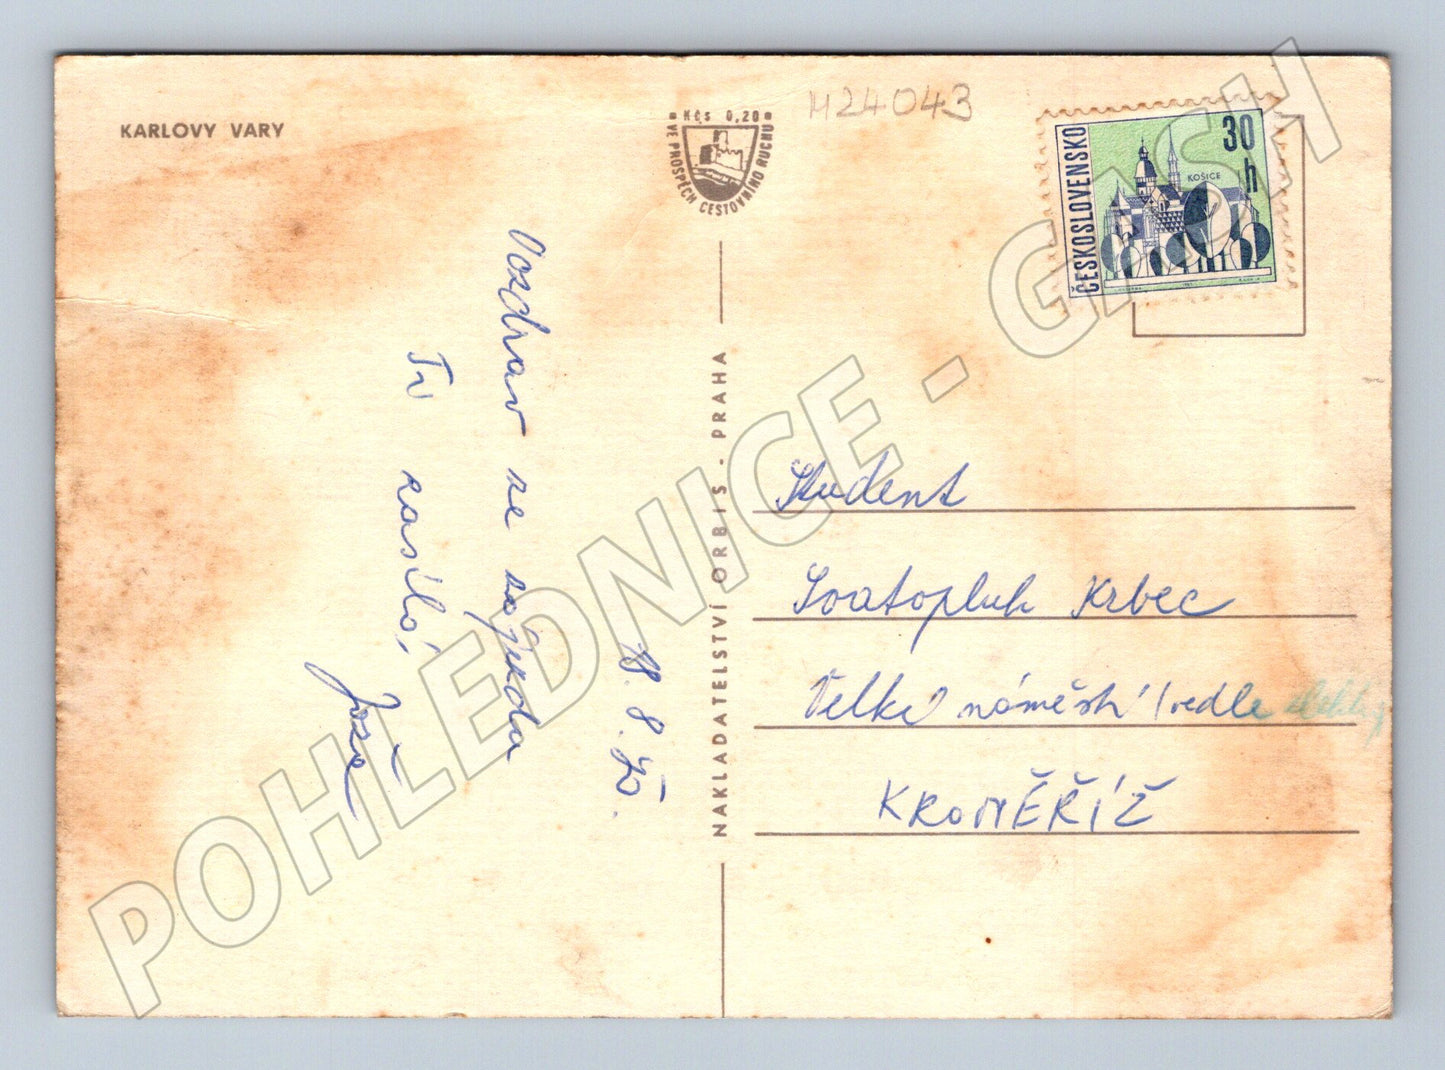 KARLOVY VARY
Kčs 0,20
VE PROSPĚCH CESTOVNÍHO RUCHU
M24043
ČESKOSLOVENSKO
30 h
KOŠICE
Pozdrav ze zájezda
Ti zasílá,
18. 8.
NAKLADATELSTVÍ ORBIS - PRAHA
Student
Svatopluk Krbec
Velké náměstí (vedle
KROMĚŘÍŽ
POHLEDNICE - GASH